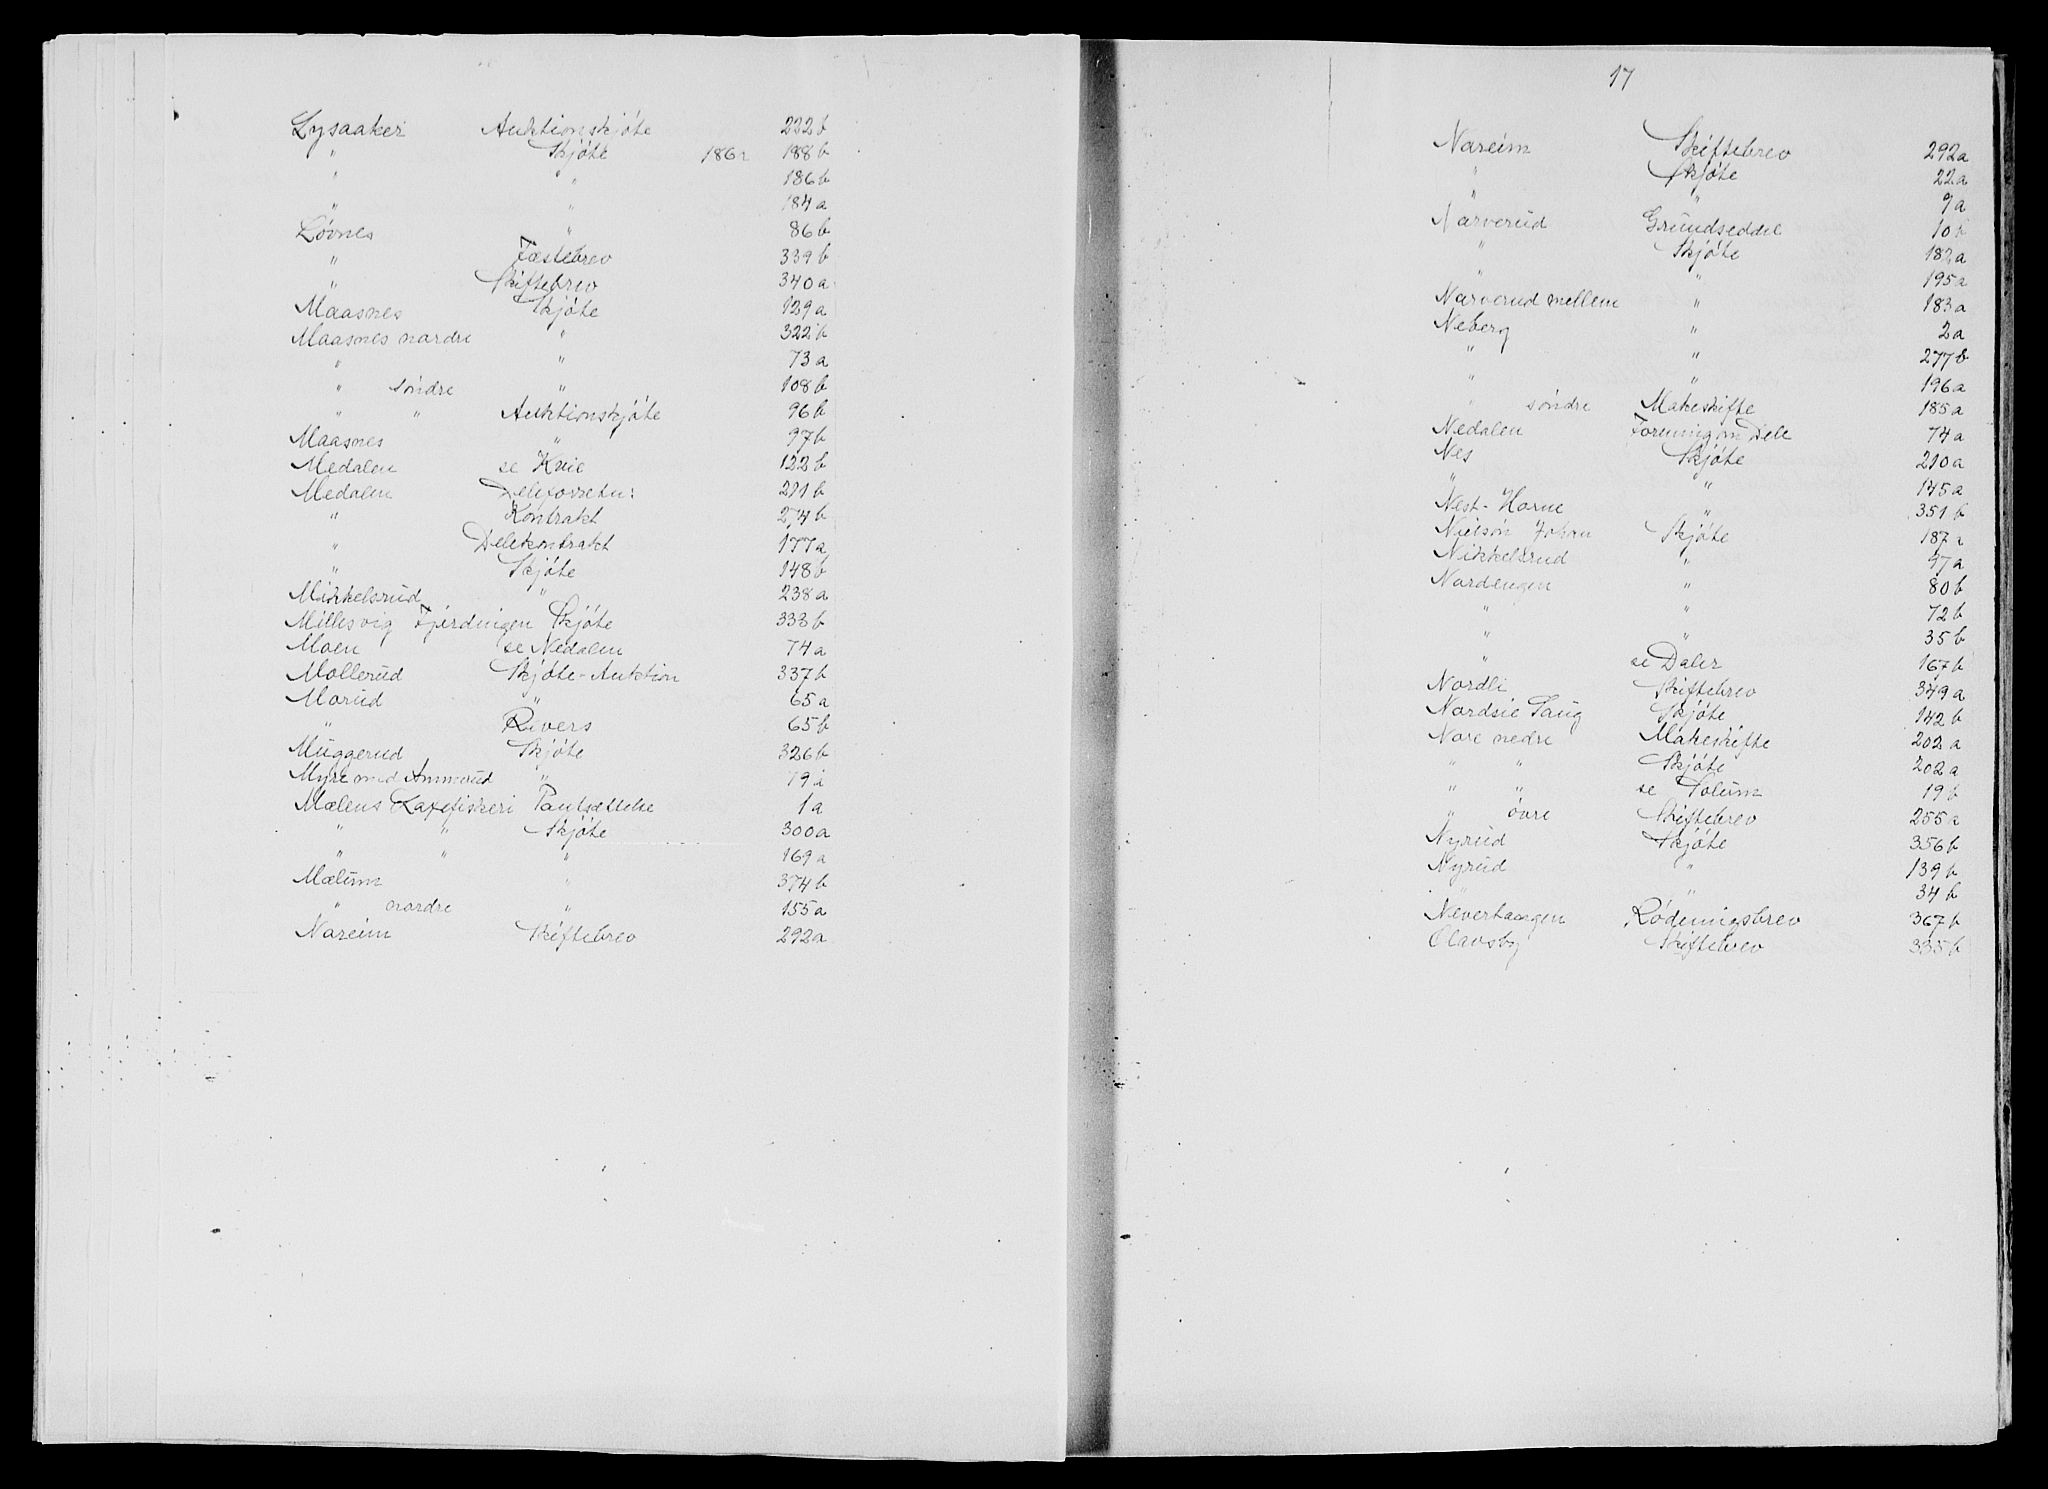 Lysaaker Auktionskjöte 222b
" Skjöte 186a 188b
" " 186b
" " 184a
Lövnes " 86b
" Fæstebrev 339b
" Skiftebrev 340a
Maasnes Skjöte 129a
Maasnes nordre " 322b
" " 73a
" söndre " 108b
" " Auktionskjöte 96b
Maasnes " 97b
Medalen se Kvie 122b
Medalen 211b
" Kontrakt 274b
" Delekontrakt 177a
" Skjöte 148b
Mikkelsrud " 238a
Millesvig Fjerdingen Skjöte 333b
Moen se Nedalen 74a
Mollerud Skjöte-Auktion 337b
Morud " 65a
" Rivers 65b
Muggerud Skjöte 326b
Myre med Ammerud " 79a
Mælens Laxefiskeri Pantsættelse 1a
" " Skjöte 300a
" " " 169a
Mælum " 374b
" nordre " 155a
Nareim Skiftebrev 292a
17
Nareim Skiftebrev 292a
" Skjöte 22a
" " 9a
Narverud Grundseddel 10b
" Skjöte 182a
" " 195a
Narverud mellem " 183a
Neberg " 2a
" " 277b
" " 196a
" söndre Makeskifte 185a
Nedalen Forening om Dele 74a
Nes Skjöte 210a
" " 145a
Nest-Horne " 351b
Nielson Johan Skjöte 187a
Nikkelsrud " 97a
Nordengen " 80b
" " 72b
" " 35b
" se Daler 167b
Nordli Skiftebrev 349a
Nordsie Saug Skjöte 142b
Nore nedre Makeskifte 202a
" " Skjöte 202a
" " se Solum 19b
" övre Skiftebrev 255a
Nyrud Skjöte 356b
Nyrud " 139b
" " 34b
Neverhaugen Rödningsbrev 367b
Olavsby Skiftebrev 335b